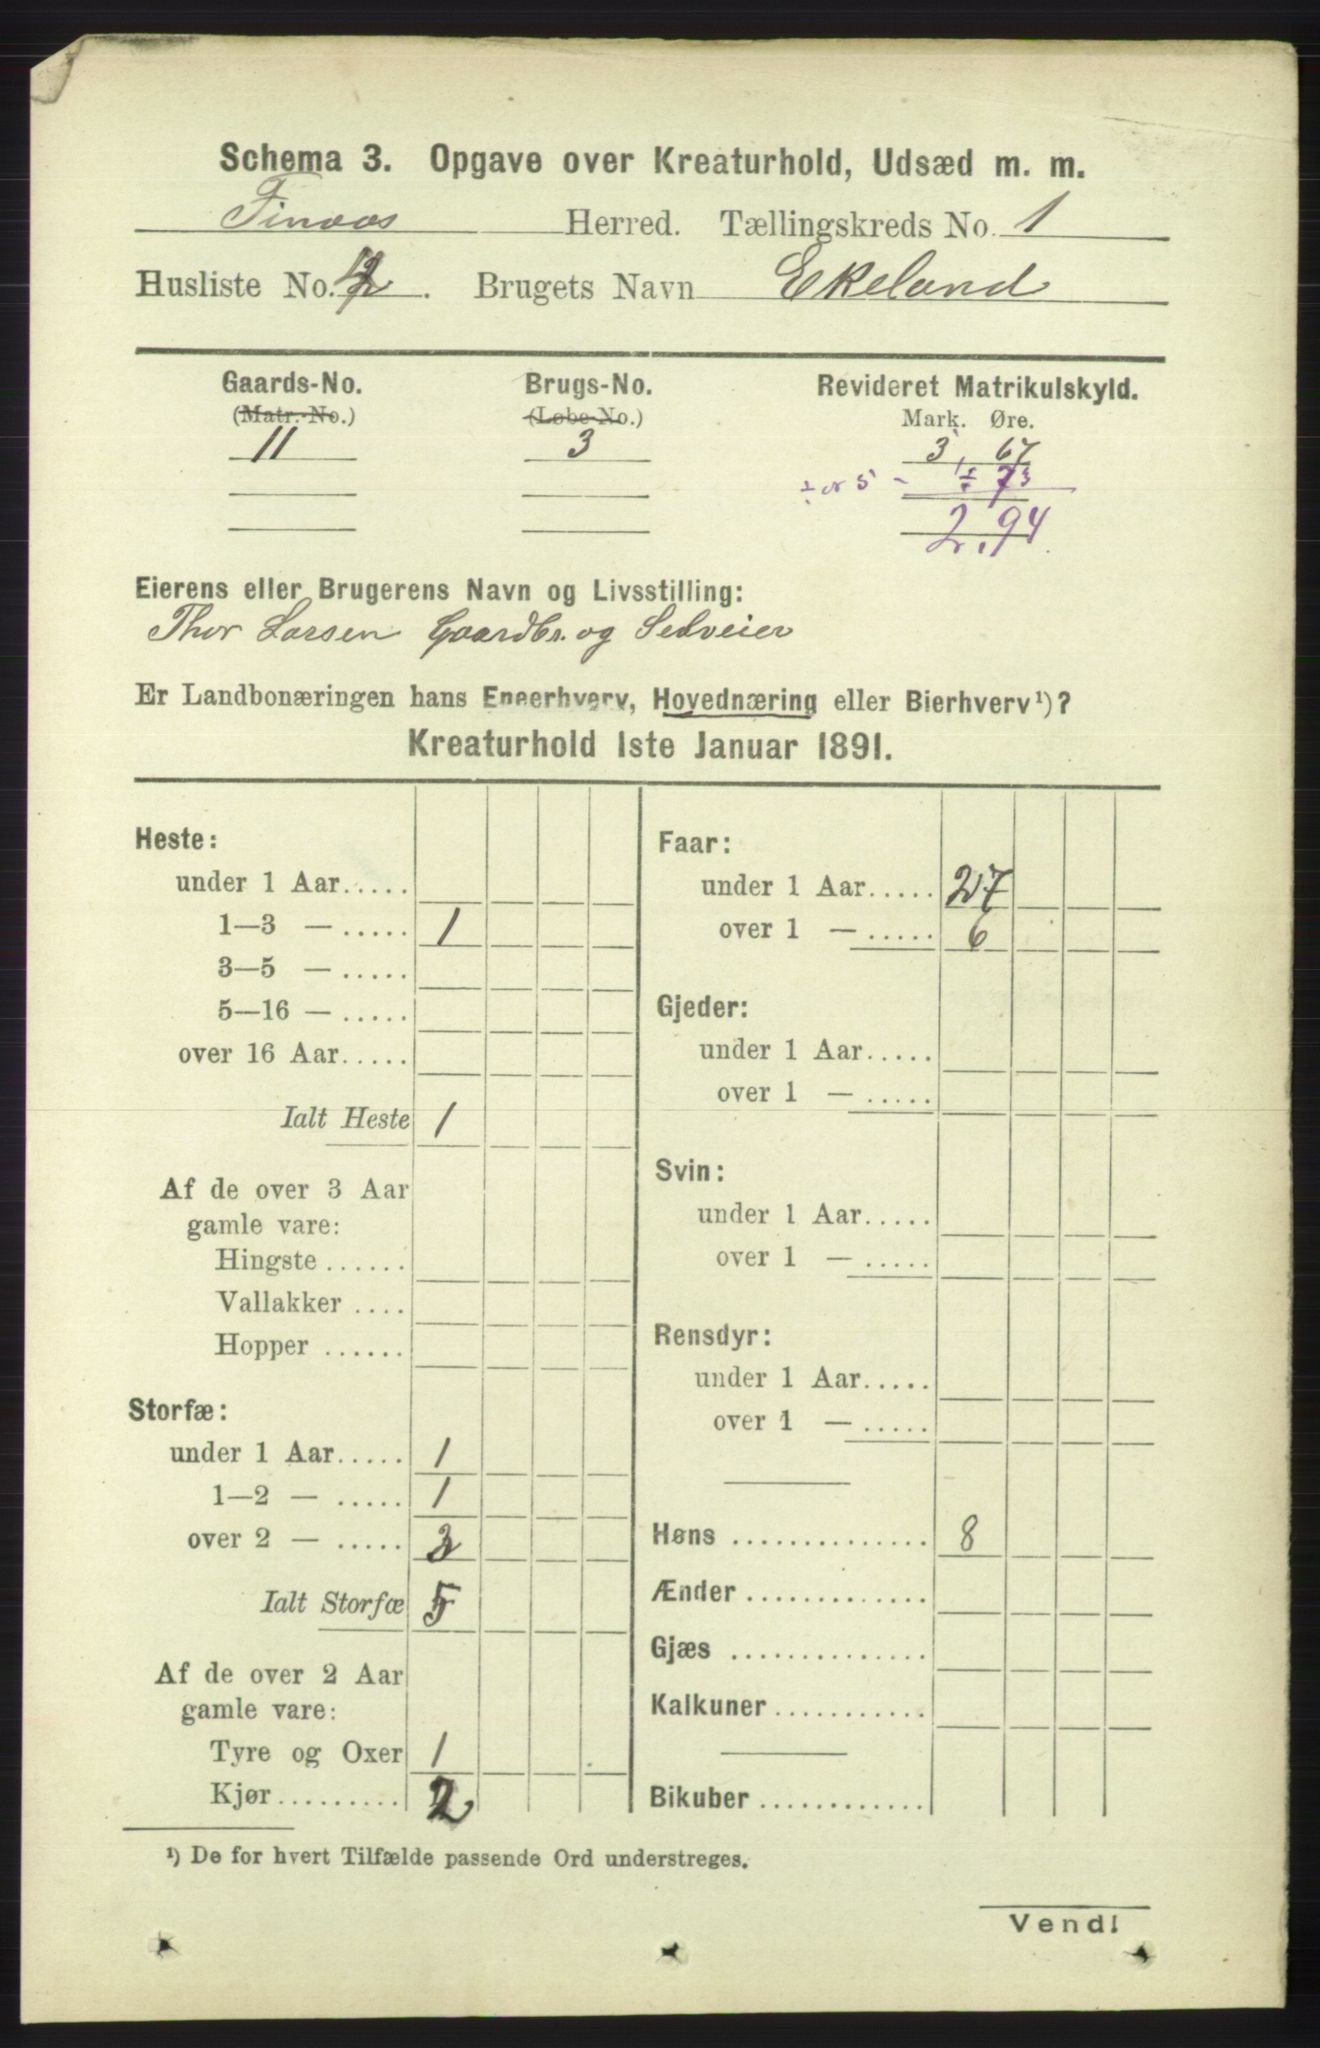 Schema 3. Opgave over Kreaturhold, Udsæd m. m.
Finaas Herred. Tællingskreds No. 1
Husliste No. 2. Brugets Navn Ekeland
Gaards-No. Brugs-No. Revideret Matrikulskyld.
(Matr.-No.) (Løbe-No.) Mark. Øre.
11 3 3, 67
÷ 73
2.94
Eierens eller Brugerens Navn og Livsstilling:
Thor Larsen Gaardbr. og Selveier
Er Landbonæringen hans Eneerhverv, Hovednæring eller Bierhverv¹)?
Kreaturhold 1ste Januar 1891.
Heste:
under 1 Aar.....
1—3 — ..... 1
3—5 — .....
5—16 — .....
over 16 Aar.....
Ialt Heste 1
Af de over 3 Aar
gamle vare:
Hingste ......
Vallakker ....
Hopper ......
Storfæ:
under 1 Aar..... 1
1—2 — ..... 1
over 2 — ..... 3
Ialt Storfæ 5
Af de over 2 Aar
gamle vare:
Tyre og Oxer 1
Kjør......... 2
Faar:
under 1 Aar..... 27
over 1 — ..... 6
Gjeder:
under 1 Aar.....
over 1 — .....
Svin:
under 1 Aar.....
over 1 — .....
Rensdyr:
under 1 Aar.....
over 1 — .....
Høns .............. 8
Ænder .............
Gjæs ..............
Kalkuner ...........
Bikuber ............
¹) De for hvert Tilfælde passende Ord understreges.
Vend!